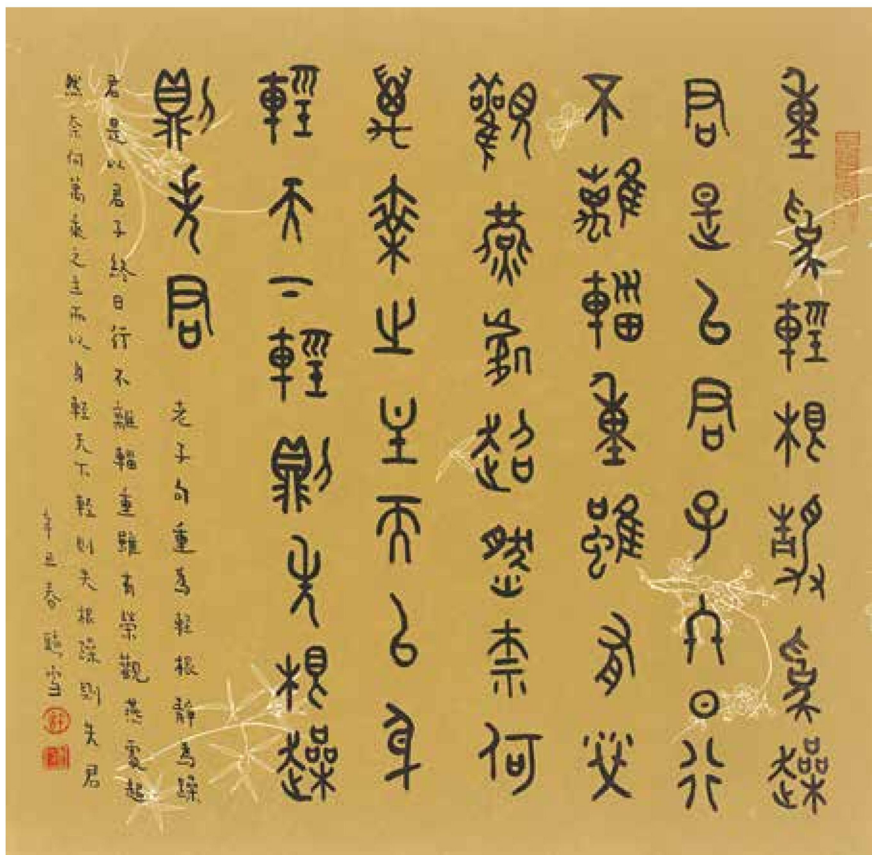 重為輕根靜為躁
君是以君子終日行
不離輜重雖有榮
觀燕處超然奈何
萬乘之主而以身
輕天下輕則失根躁
則失君
老子句重為輕根靜為躁
君是以君子終日行不離輜重雖有榮觀燕處超
然奈何萬乘之主而以身輕天下輕則失根躁則失君
辛丑春雪